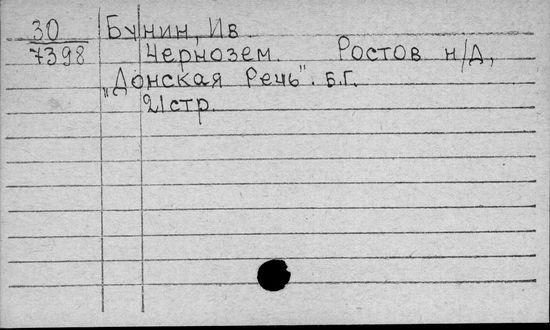 30 Бунин, Ив
7398 Чернозем. Ростов н/Д,
„Донская Речь". Б.Г.
21стр.